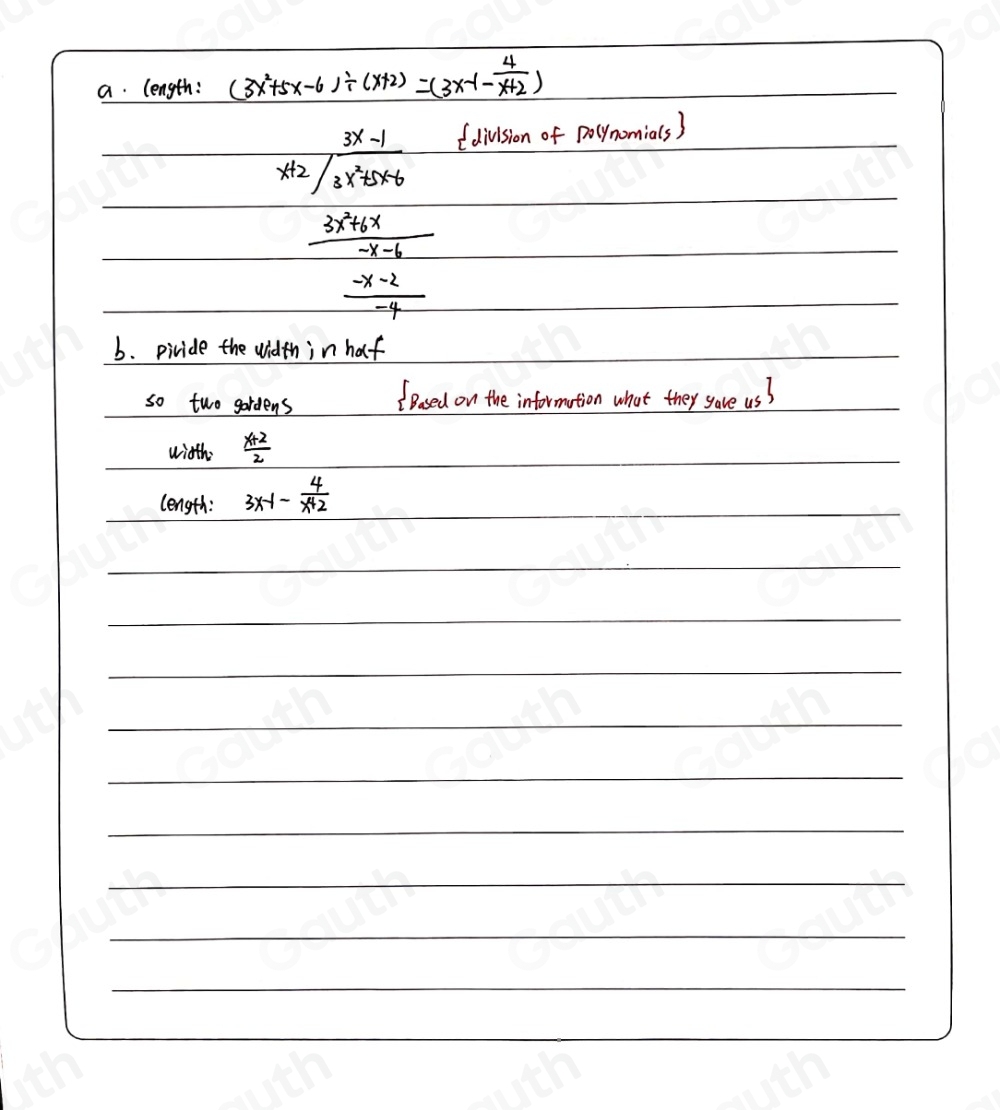 a. length: (3x²+5x-6)÷(x+2)=(3x-1-4/(x+2))
3x-1 {division of polynomials}
x+2 / 3x²+5x-6
3x²+6x
-x-6
-x-2
-4
b. Divide the width in half
so two gardens {Based on the information what they gave us}
width: (x+2)/2
length: 3x-1-4/(x+2)